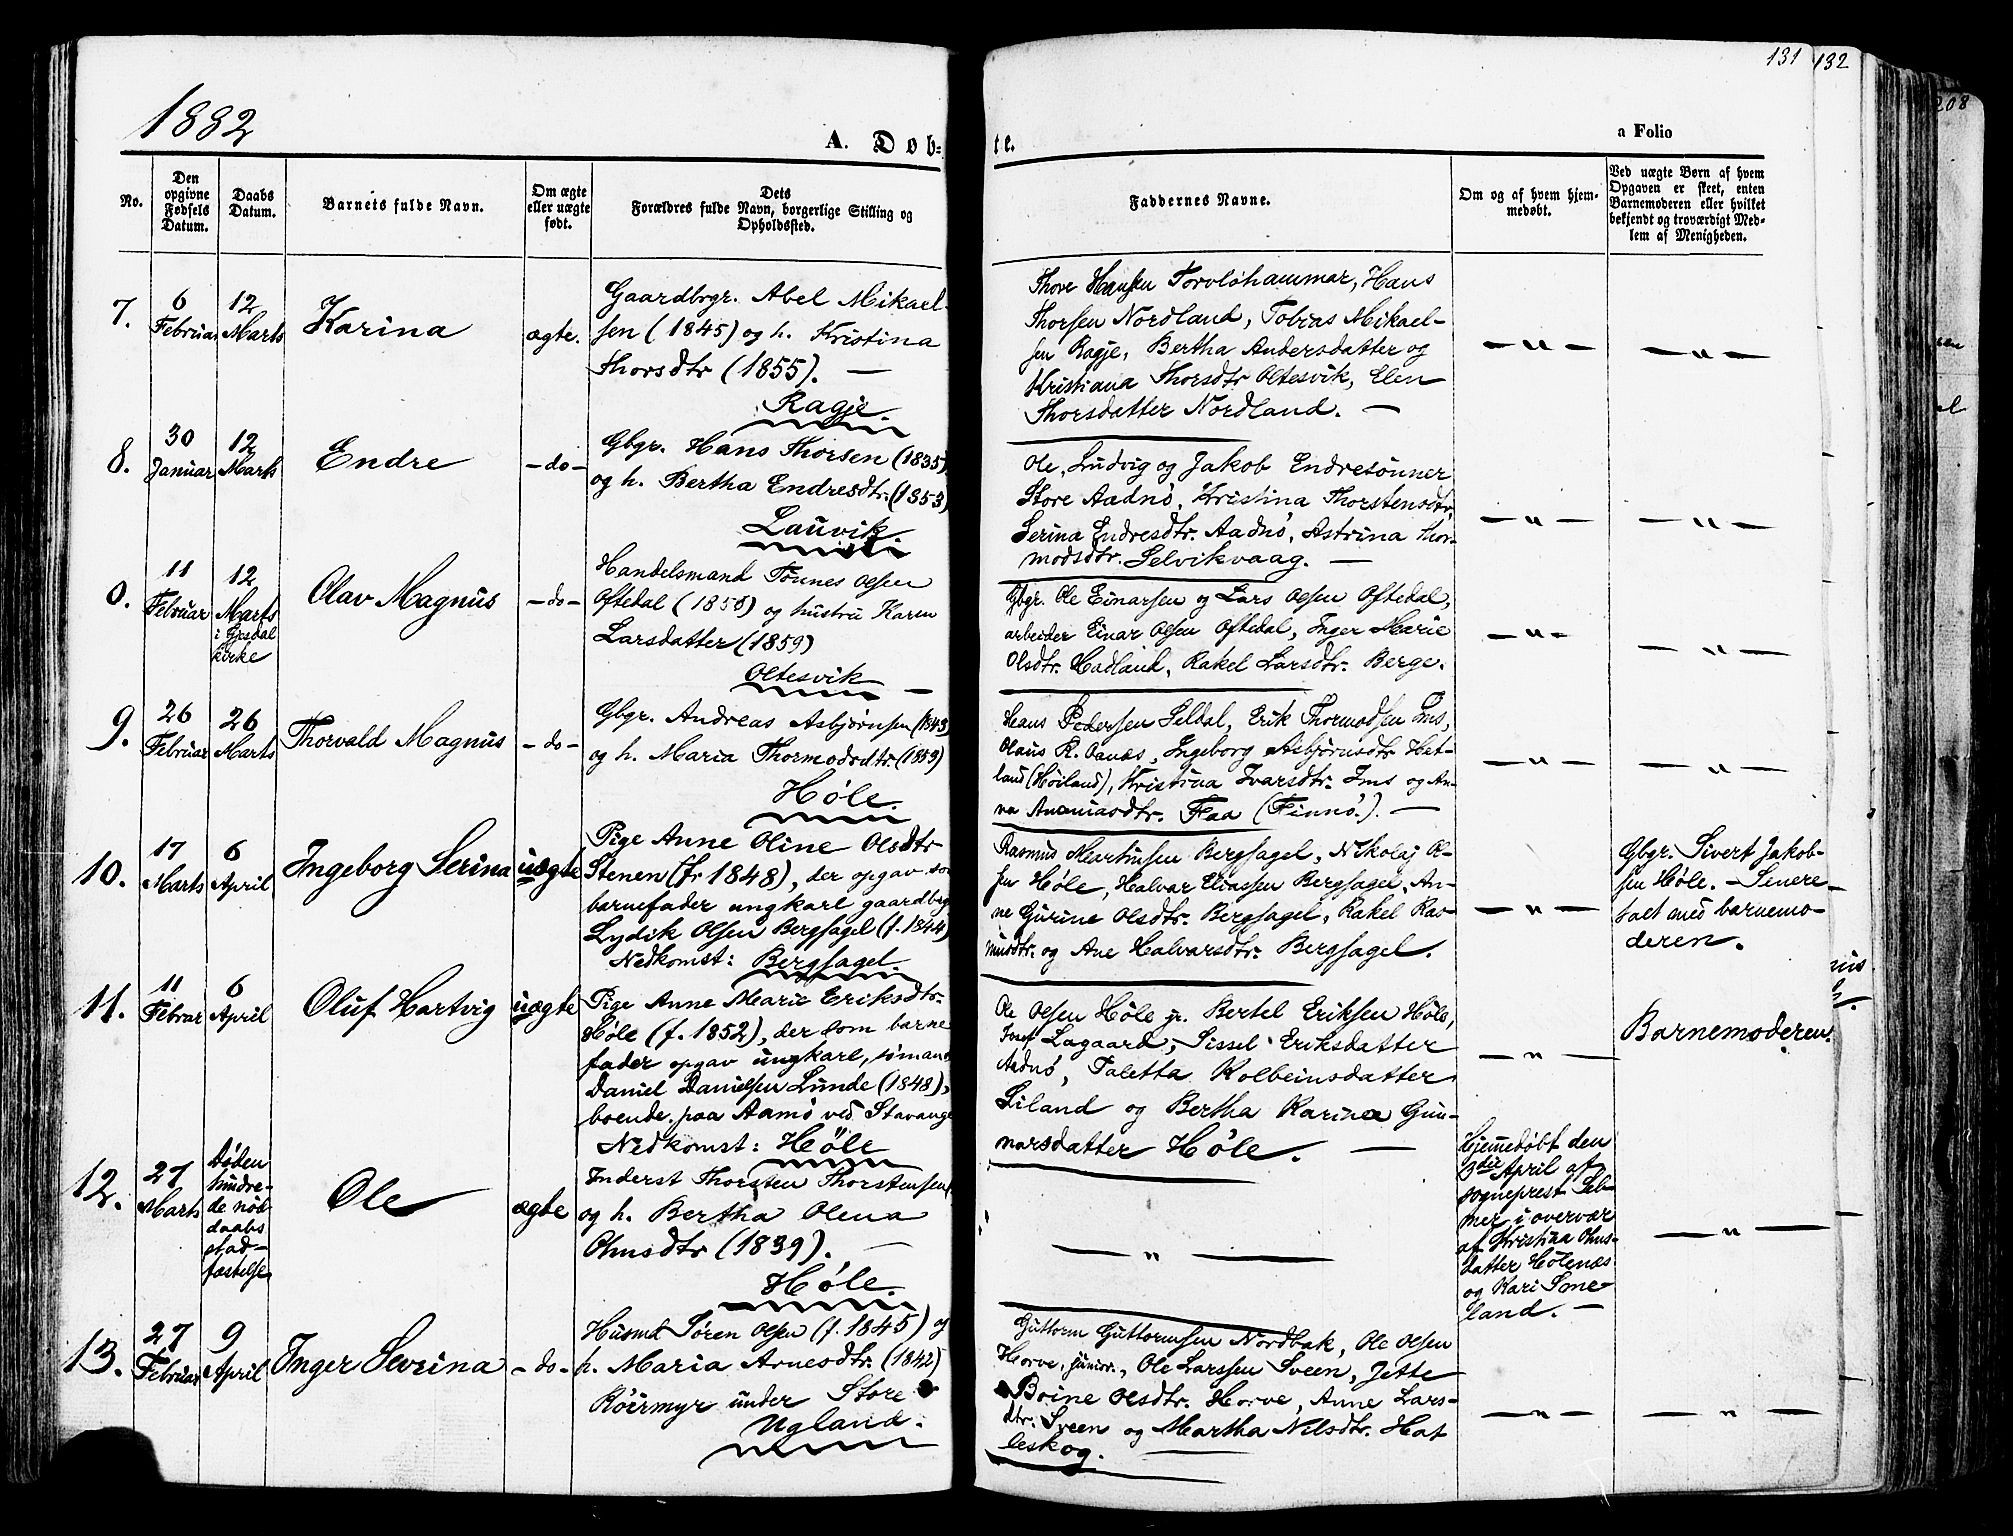 1882
131
132
208
A. Døb=
te.
a Folio
No.
Den opgivne Fødsels Datum.
Daabs Datum.
Barnets fulde Navn.
Om ægte eller uægte født.
Dets Forældres fulde Navn, borgerlige Stilling og Opholdssted.
Faddernes Navne.
Om og af hvem hjemmedøbt.
Ved uægte Børn af hvem Opgaven er skeet, enten Barnemoderen eller hvilket bekjendt og troværdigt Medlem af Menigheden.
7.
6 Februar
12 Marts
Karina
ægte.
Gaardbrgr. Abel Mikael-
sen (1845) og h. Kristina
Thorsdtr (1855). —
Ragje.
Thore Hansen Torvløhammar, Hans
Thorsen Nordland, Tobias Mikael-
sen Ragje, Bertha Andersdatter og
Kristiana Thorsdtr Oltesvik, Elen
Thorsdatter Nordland. —
— " —
— " —
8.
30 Januar
12 Marts
Endre
- do -
Gbgr. Hans Thorsen (1835)
og h. Bertha Endresdtr. (1853)
Lauvik.
Ole, Ludvig og Jakob Endresønner
Store Aadnø, Kristina Thorstensdtr,
Serina Endresdtr. Aadnø, Astrina Thor-
modsdtr. Selvikvaag. —
— " —
— " —
0.
11 Februar
12 Marts
i Gjesdal
kirke
Olav Magnus
- do -
Handelsmand Tønnes Olsen
Oftedal (1858) og hustru Karen
Larsdatter (1859)
Oltesvik —
Gbgr. Ole Einarsen og Lars Olsen Oftedal,
arbeider Einar Olsen Oftedal, Inger Marie
Olsdtr. Hadland, Rakel Larsdtr. Berge.
— " —
— " —
9.
26 Februar
26 Marts
Thorvald Magnus
- do -
Gbgr. Andreas Asbjørnsen (1843)
og h. Maria Thormodsdtr. (1859)
Høle.
Hans Pedersen Seldal, Erik Thormodsen Ims,
Olaus R. Aanæs, Ingeborg Asbjørnsdtr. Het-
land (Høiland), Kristina Ivarsdtr. Ims og An-
na Ananiasdtr. Faa (Finnø). —
— " —
— " —
10.
17 Marts
6 April
Ingeborg Serina
uægte
Pige Anne Oline Olsdtr
Stenen (f. 1848), der opgav som
barnefader ungkarl gaardbgr
Lydik Olsen Bergsagel (f. 1844)
Nedkomst: Bergsagel.
Rasmus Martinsen Bergsagel, Nikolaj Ol-
sen Høle, Halvar Eliassen Bergsagel, An-
ne Gurine Olsdtr. Bergsagel, Rakel Ras-
musdtr. og Ane Halvarsdtr. Bergsagel.
— " —
Gbgr. Sivert Jakob-
sen Høle. — Senere
talt med barnemo-
deren.
11.
11 Februar
6 April
Oluf Hartvig
uægte
Pige Anne Marie Eriksdtr.
Høle (f. 1852), der som barne
fader opgav ungkarl, sømand
Daniel Danielsen Lunde (1848),
boende paa Aamø ved Stavanger
Nedkomst: Høle
Ole Olsen Høle jr. Bertel Eriksen Høle,
Josef Lagaard, Sissel Eriksdatter
Aadnø, Taletta Kolbeinsdatter
Liland og Bertha Karina Gun-
narsdatter Høle. —
— " —
Barnemoderen.
12.
27 Marts
Døden
hindre-
de nød-
daabs
stad-
fæstelse
Ole
ægte
Inderst Thorsten Thorstensen
og h. Bertha Olena
Omsdtr (1839). —
Høle.
— " —
Hjemmedøbt den
3die April af
sogneprest Sel-
mer i overvær
af Kristina Oms-
datter Hølenæs
og Kari Sme-
land. —
— " —
13.
27 Februar
9 April
Inger Severina
- do -
Husmd. Søren Olsen (f. 1845) og
h. Maria Arnesdtr. (1842)
Røirmyr under Store
Ugland.
Guttorm Guttormsen Nordbak, Ole Olsen
Horve, junior., Ole Larssen Sveen, Jette
Boine Olsdtr. Horve, Anne Lars-
dtr. Sveen og Martha Nilsdtr. Hat
leskog.
— " —
— " —